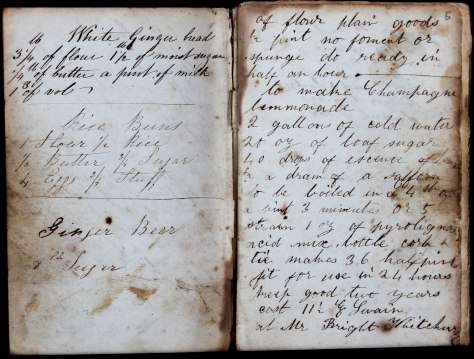 lb White Ginger bead
3 1/4 of flour 1 1/2 lb of moist sugar
1/4 lb of butter a pint of milk
1 3d of vol
Rice Buns
1 Flour 1/2 Rice
1/2 Butter 3/4 Sugar
4 Eggs 3/4 Stuff
Ginger Beer
Suger
5
of flour plain goods
1/2 pint no foment or
spunge do ready in
half an hour
to make Champagne
lemmonade
2 gallons of cold water
20 oz of loaf sugar
40 drops of essence of
1/2 a dram of a saffern
to be boiled in
a pint 3 minutes or 5
strain 1 oz of pyrolignas
acid mix bottle cork &
tie makes 36 half pint
fit for use in 24 hours
keep good two years
cost 11 1/2 E Swain
at Mr Bright Whitchurch